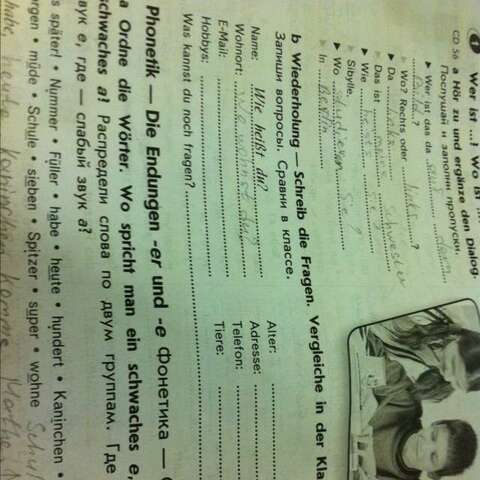 1 Wer ist ...! Wo ist ...
CD 56 a Hör zu und ergänze den Dialog.
Послушай и заполни пропуски.
▶ Wer ist das da
▶ Wo? Rechts oder links ?
▶ Da
▶ Das ist
▶ Wie heißt
▶ Sibylle.
▶ Wo studieren Sie ?
▶ In Berlin
b Wiederholung — Schreib die Fragen. Vergleiche in der Kla
Запиши вопросы. Сравни в классе.
Name: Wie heißt du? Alter:
Wohnort: Wo wohnst du? Adresse:
E-Mail: Telefon:
Hobbys: Tiere:
Was kannst du noch fragen?
Phonetik — Die Endungen -er und -e Фонетика —
a Ordne die Wörter. Wo spricht man ein schwaches e,
schwaches a? Распредели слова по двум группам. Где
звук е, где — слабый звук а?
s später! • Nummer • Füller • habe • heute • hundert • Kaninchen •
orgen • müde • Schule • sieben • Spitzer • super • wohne
habe, heute Kaninchen Komme